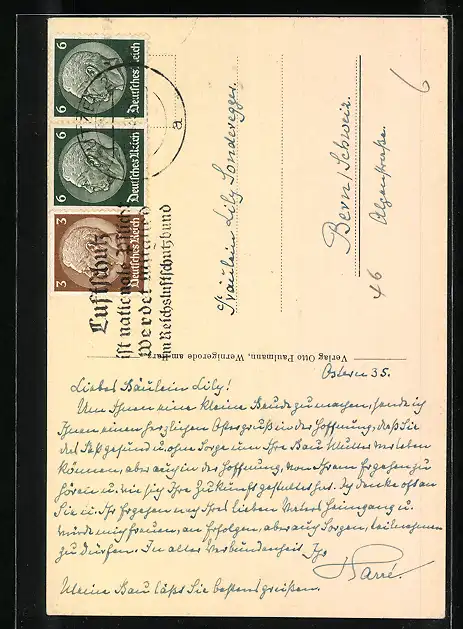 6
Deutsches Reich
6
6
Deutsches Reich
6
3
Deutsches Reich
Luftschutz
ist nationale Pflicht
werdet Mitglied
im Reichsluftschutzbund
a
6
Fräulein Lily Sonderegger
Bern/Schweiz.
46
Verlag Otto Paulmann, Wernigerode am Harz
Ostern 35.
Liebes Fräulein Lily!
Um Ihnen eine kleine Freude zu machen, sende ich
Ihnen einen herzlichen Ostergruß in der Hoffnung, daß Sie
das Fest gesund u. ohne Sorge um Ihre Frau Mutter verleben
können, aber auch in der Hoffnung, von Ihrem Ergehen zu
hören u. wie sich Ihre Zukunft gestaltet hat. Ich denke oft an
Sie u. Ihr Ergehen nach Ihres lieben Vaters Heimgang u.
würde mich freuen, an Erfolgen, aber auch Sorgen, teilnehmen
zu dürfen. In alter Verbundenheit Ihr
Meine Frau läßt Sie bestens grüßen.